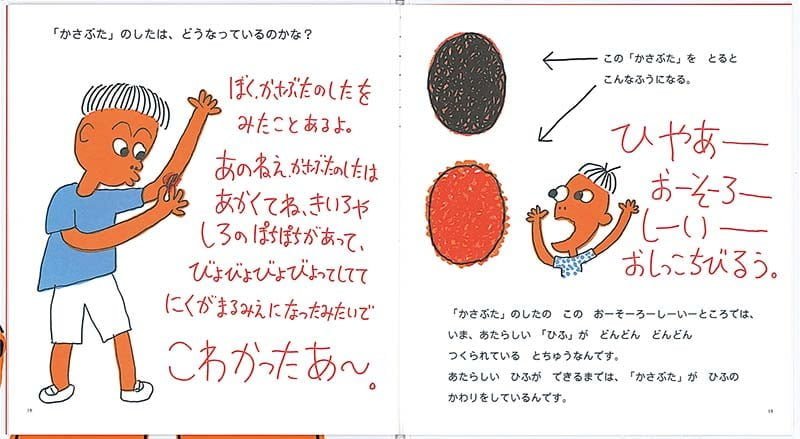 「かさぶた」のしたは、どうなっているのかな？
ぼく、かさぶたのしたを
みたことあるよ。
あのねえ、かさぶたのしたは
あかくてね、きいろや
しろの ぽちぽちがあって、
びよびよびよびよってしてて
にくがまるみえになったみたいで
こわかったあ〜。
18
この「かさぶた」を　とると
こんなふうになる。
ひやあー
おーそーろー
しーいー
おしっこちびるう。
「かさぶた」のしたの　この　おーそーろーしーいーところでは、
いま、あたらしい「ひふ」が　どんどん　どんどん
つくられている　とちゅうなんです。
あたらしい　ひふが　できるまでは、「かさぶた」が　ひふの
かわりをしているんです。
19